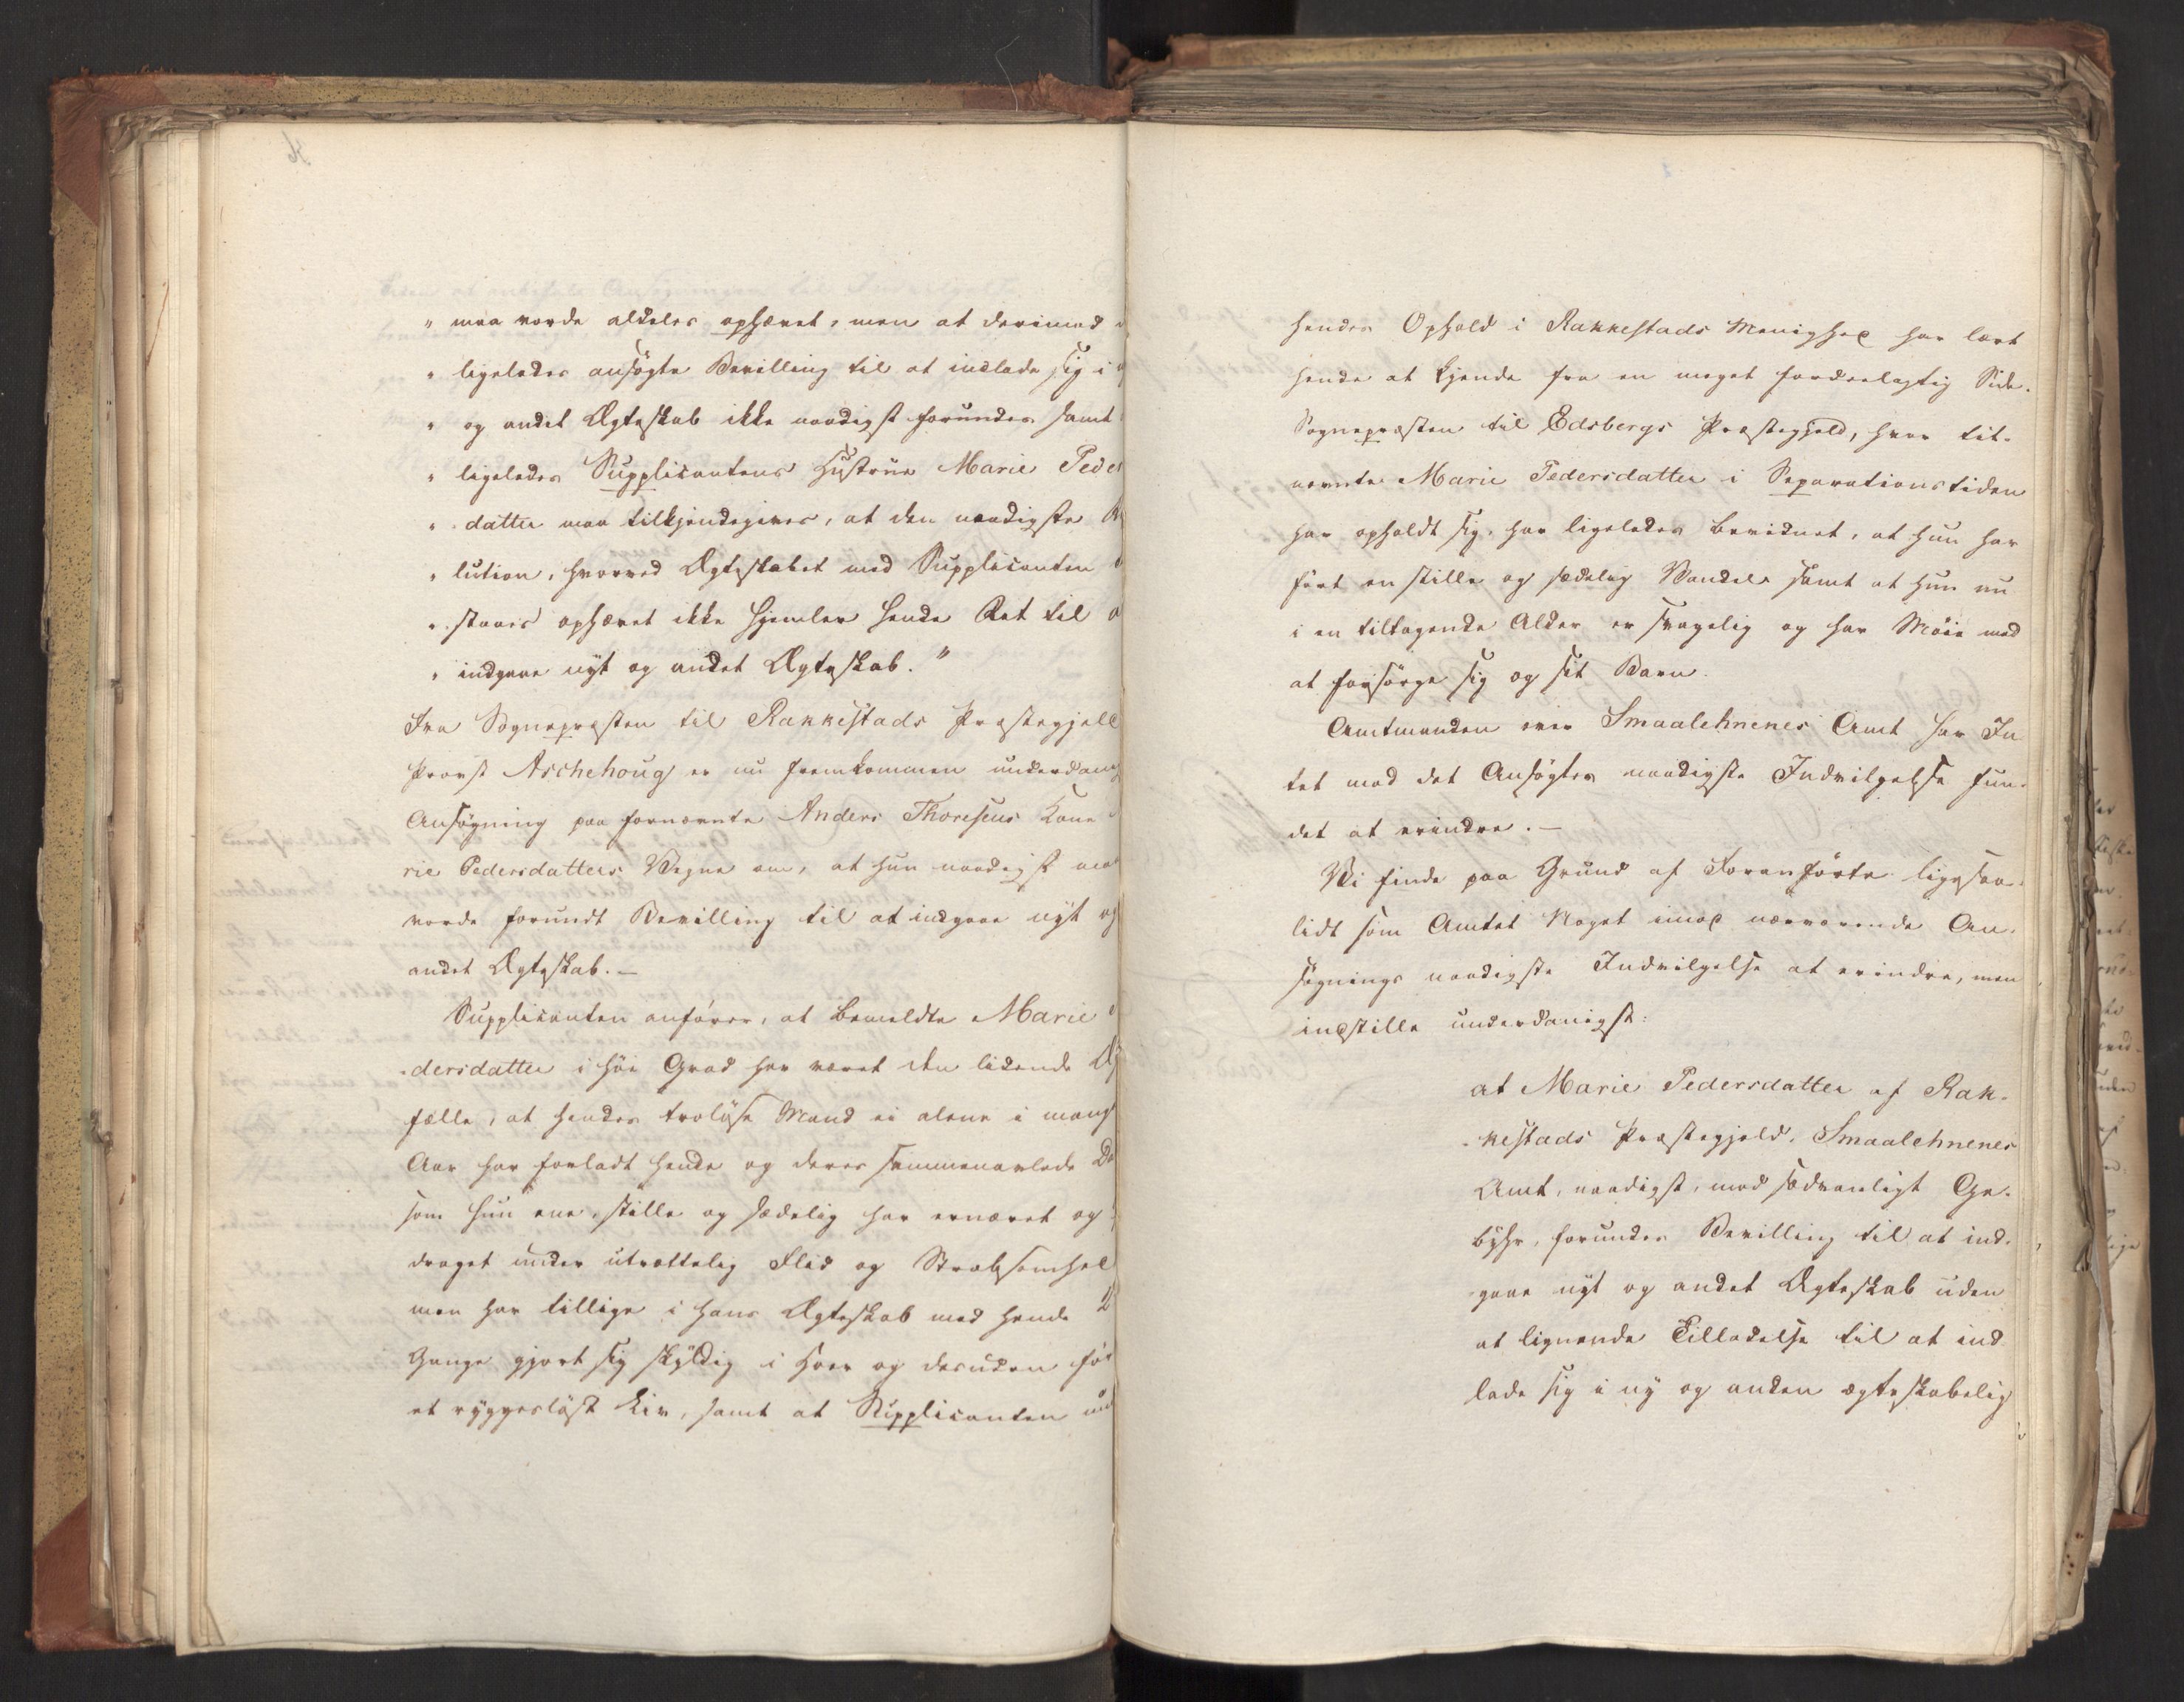 " maa vorde aldeles ophævet, men at derimod
" ligeledes ansøgte Bevilling til at indlade sig i
" og andet Ægteskab ikke naadigst forundes samt
" ligeledes Supplicantens Hustrue Marie Peder
" datter maa tilkjendegives, at den naadigste
" lution, hvorved Ægteskabet med Supplicanten
" staaes ophævet ikke hjemler hende Ret til
" indgaae nyt og andet Ægteskab."
Fra Sognepræsten til Rakkestads Præstegjeld
Provst Aschehoug er nu fremkommen underdanig
Ansøgning paa fornævnte Anders Thoresens Kone
rie Pedersdatters Vegne om, at hun naadigst maa
vorde forundt Bevilling til at indgaae nyt og
andet Ægteskab. —
Supplicanten anfører, at bemeldte Marie
-dersdatter i høi Grad har været den lidende Æg
fælle, at hendes troløse Mand ei alene i mange
Aar har forladt hende og deres sammenavlede
som hun ene, stille og sædelig har ernæret og
draget under utrættelig Flid og Stræbsomhed
men har tillige i hans Ægteskab med hende 2
Gange gjort sig skyldig i Hoer og desuden før
et ryggesløst Liv, samt at Supplicanten
hendes Ophold i Rakkestads Menighed har lært
hende at kjende fra en meget fordeelagtig Side.
Sognepræsten til Edsbergs Præstegjeld, hvor tit-
nævnte Marie Pedersdatter i Separationstiden
har opholdt sig, har ligeledes bevidnet, at hun har
ført en stille og sædelig Vandel samt at hun nu
i en tiltagende Alder er svagelig og har Møie med
at forsørge sig og sit Barn.
Amtmanden over Smaalehnenes Amt har In
tet mod det Ansøgtes naadigste Indvilgelse fun-
det at erindre. —
Vi finde paa Grund af Foranførte ligesaa-
lidt som Amtet Noget imod nærværende An-
søgnings naadigste Indvilgelse at erindre, men
indstille underdanigst:
at Marie Pedersdatter af Rak-
-kestads Præstegjeld, Smaalehnenes
Amt, naadigst, mod sædvanligt Ge-
byhr, forundes Bevilling til at ind-
gaae nyt og andet Ægteskab uden
at lignende Tilladelse til at ind
lade sig i ny og anden ægteskabelig